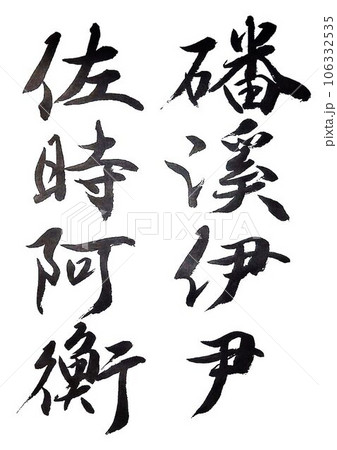 磻溪伊尹
佐時阿衡
PIXTA
106332535